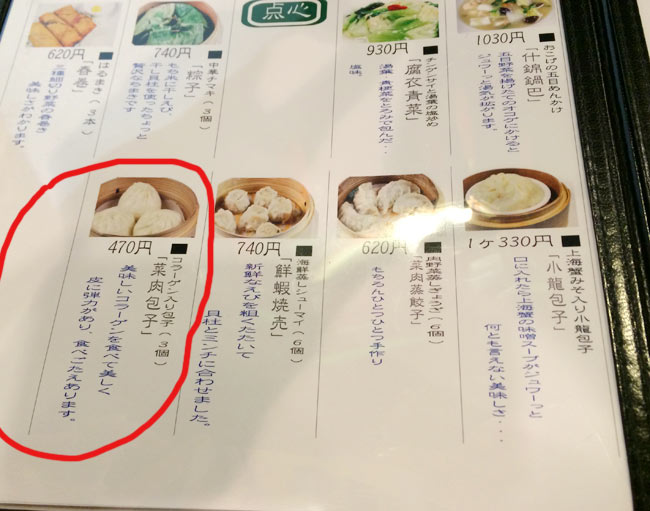 点心
1030円
おこげの五目あんかけ
「什錦鍋巴」
五目野菜を揚げたてのオコゲにかけると
ジュワーっと湯気が拡がります。
930円
チンゲンサイと湯葉の塩炒め
「腐衣青菜」
湯葉、青梗菜をとろみで包んだ・・
塩味。
740円
中華チマキ(3個)
「粽子」
もち米に干しえび、
干し貝柱を使ったちょっと
贅沢なちまきです
620円
はるまき(3本)
「春巻」
2種細切り野菜の春巻き
美味しさがわかります。
1ケ330円
上海蟹みそ入り小龍包子
「小龍包子」
口に入れたら上海蟹の味噌スープがジュワーっと
何とも言えない美味しさ・・・
620円
肉野菜蒸しぎょうざ(6個)
「菜肉蒸餃子」
もちろんひとつひとつ手作り
740円
海鮮蒸しシューマイ(6個)
「鮮蝦焼売」
新鮮なえびを粗くたたいて
貝柱とミンチに合わせました。
470円
コラーゲン入り包子(3個)
「菜肉包子」
美味しい、コラーゲンを食べて美しく
皮に弾力があり、食べごたえあります。